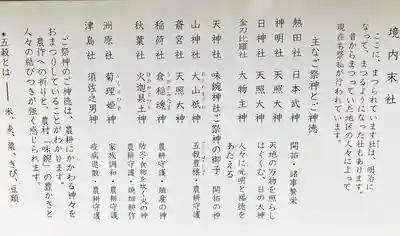 境内末社
ここに、まつられています社は、明治に
なって、まつるようになった社もあります。
昔からまつってきた地区の人々によって
現在も祭礼が行われています。
主なご祭神とご神徳
熱田社 日本武神 開拓・諸事繁栄
神明社 天照大神 天地の万物を照らし
日神社 天照大神 はぐくむ、日の大神
金刀比羅社 大物主神 人々に光明と福徳を
あたえる
天神社 味鋺神社ご祭神の御子 開拓の神
山神社 大山祇神 五穀豊穣・農耕守護
斎宮社 天照大神
稲荷社 倉稲魂神 農耕守護・殖産の神
秋葉社 火迦具土神 防災・食物を炊く火の神
農耕守護・焼畑耕作
洲原社 菊理姫神 家族調和・農耕守護
津島社 須佐之男神 疫病退散・農耕守護
ご祭神のご神徳は、農耕にかかわる神々を
おまつりしていることがわかります。
農作への祈りと、農村「味鋺」の豊かさと
人々の結びつきが強く感じられます。
●五穀とは――米、麦、粟、きび、豆類